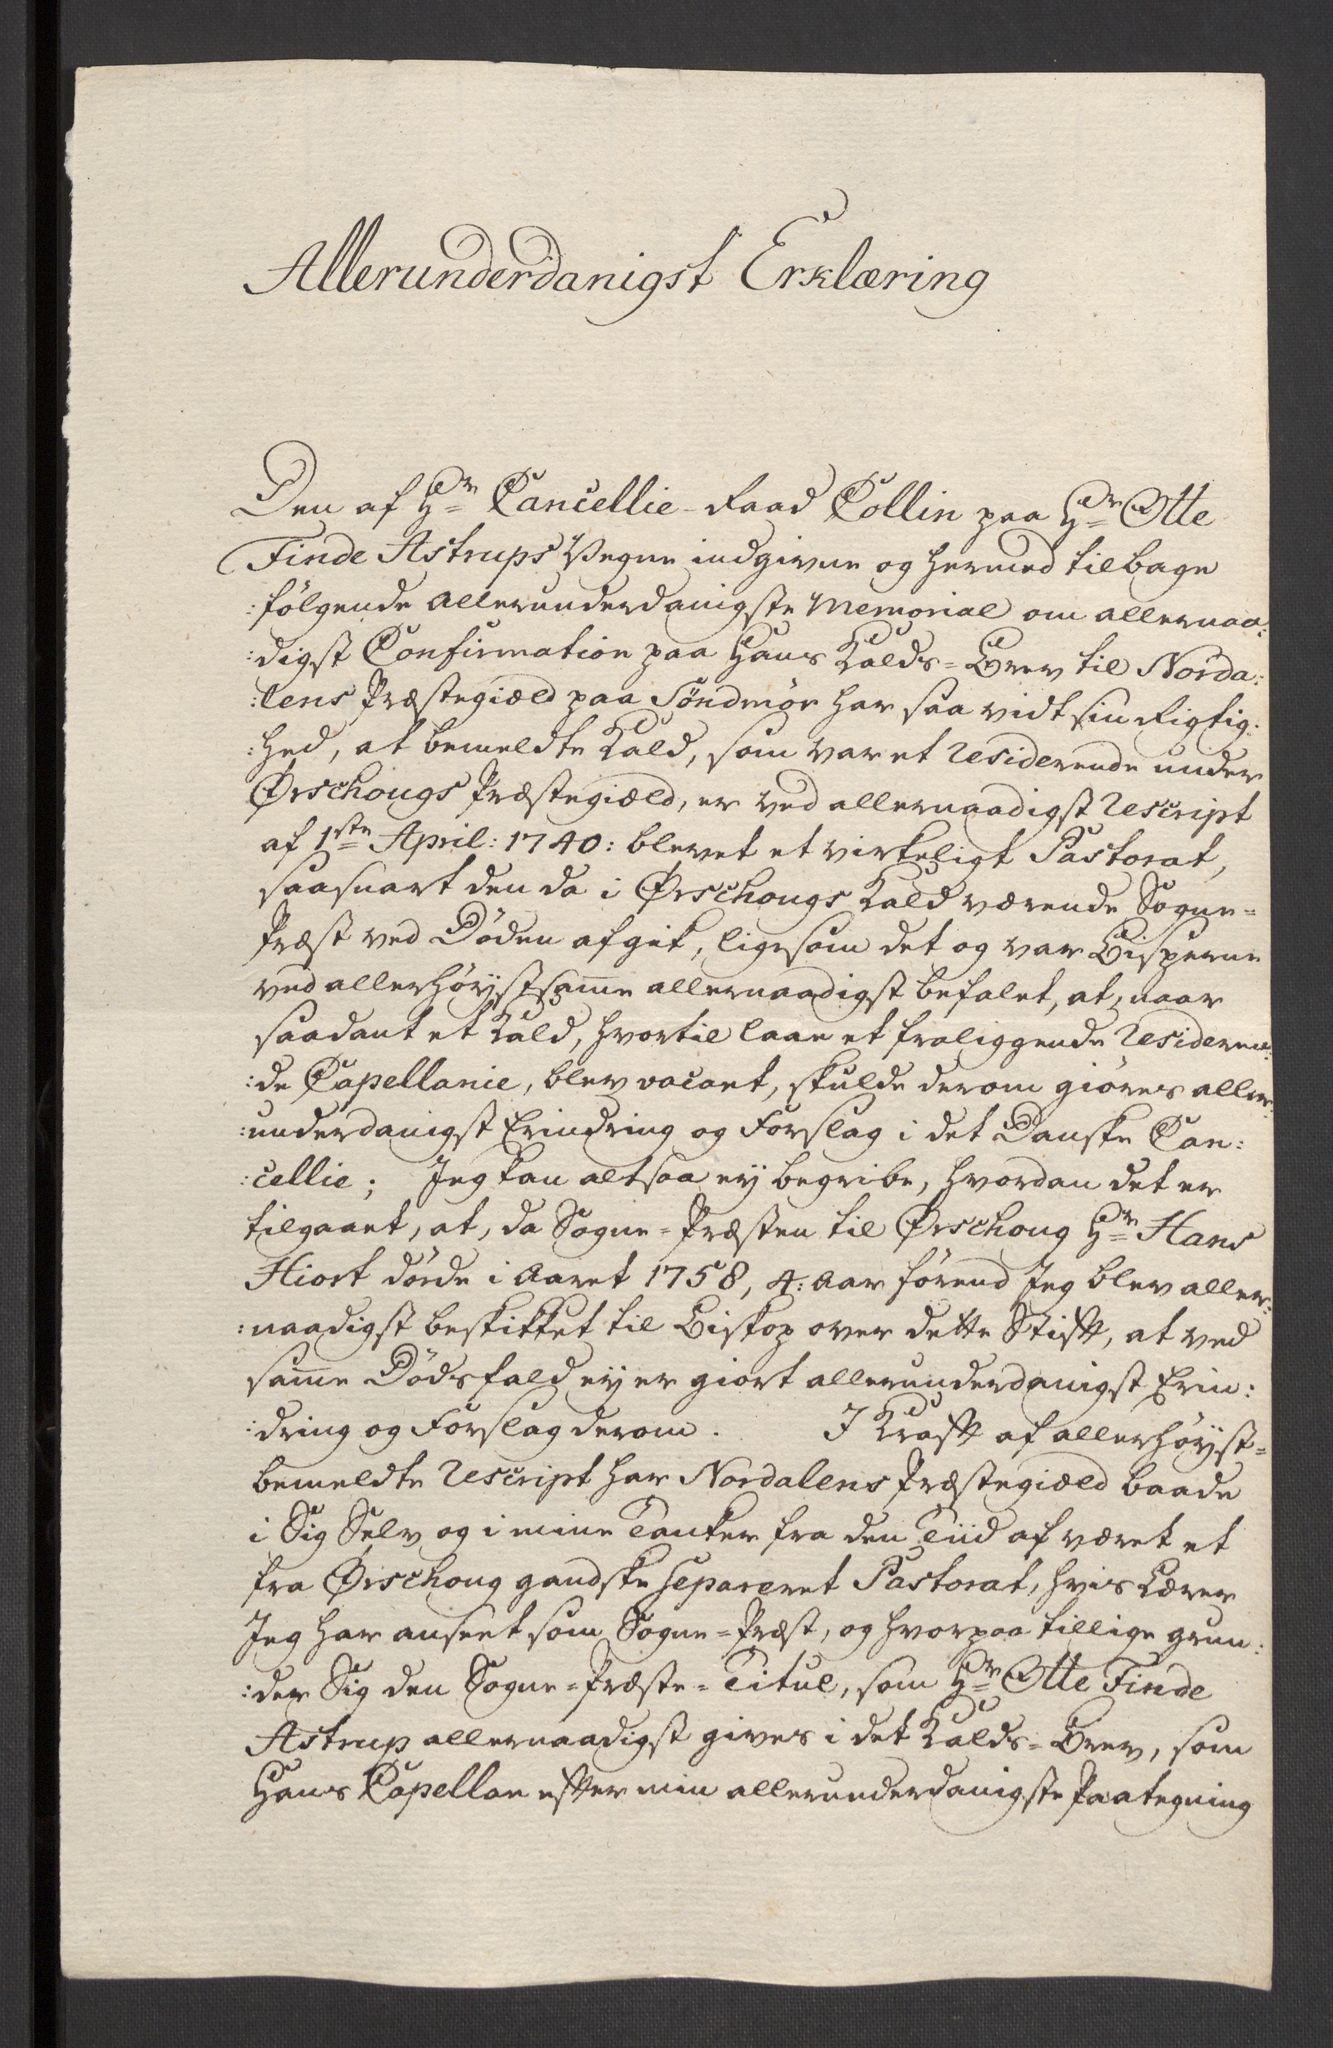 Allerunderdanigst Erklæring
Den af Hr Cancellie-Raad Collin paa Hr Otte
Finde Astrups Vegne indgivne og hermed tilbage
:følgende allerunderdanigste Memorial om allernaa:
:digst Confirmation paa Hans Kalds-Brev til Norda:
:lens Præstegiæld paa Søndmør har saavidt sin Rigtig:
:hed, at bemeldte Kald, som var et residerende under
Ørschougs Præstegiæld, er ved allernaadigst Rescript
af 1ste April: 1740: blevet et virkeligt Pastorat,
saasnart den da i Ørschougs Kald værende Sogne-
Præst ved Døden afgik, ligesom det og var Bisperne
ved allerhøystsamme allernaadigst befalet, at, naar
saadant et Kald, hvortil laae et fraliggende Resideren:
:de Capellanie, blev vacant, skulde derom giøres aller:
:underdanigst Erindring og Forslag i det Danske Can:
:cellie; Jeg kan altsaa ey begribe, hvordan det er
tilgaaet, at, da Sogne-Præsten til Ørschoug Hr Hans
Hiort døde i Aaret 1758, 4: Aar førend Jeg blev aller:
:naadigst beskikket til Biskop over dette Stift, at ved
samme Dødsfald ey er giort allerunderdanigst Erin:
:dring og Forslag derom. I Kraft af allerhøyst-
bemeldte Rescript har Nordalens Præstegiæld baade
i Sig Selv og i mine Tanker fra den Tiid af været et
fra Ørschoug gandske separeret Pastorat, hvis Lærer
Jeg har anseet som Sogne-Præst, og hvorpaa tillige grun:
:der Sig den Sogne-Præste-Titul, som Hr Otte Finde
Astrup allernaadigst gives i det Kalds-Brev, som
Hans Capellan efter min allerunderdanigste Paategning